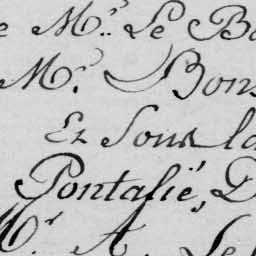 e M.r Le Bo
M.r Bons
Et Sous la
Pontalié, D
M.r A. Le